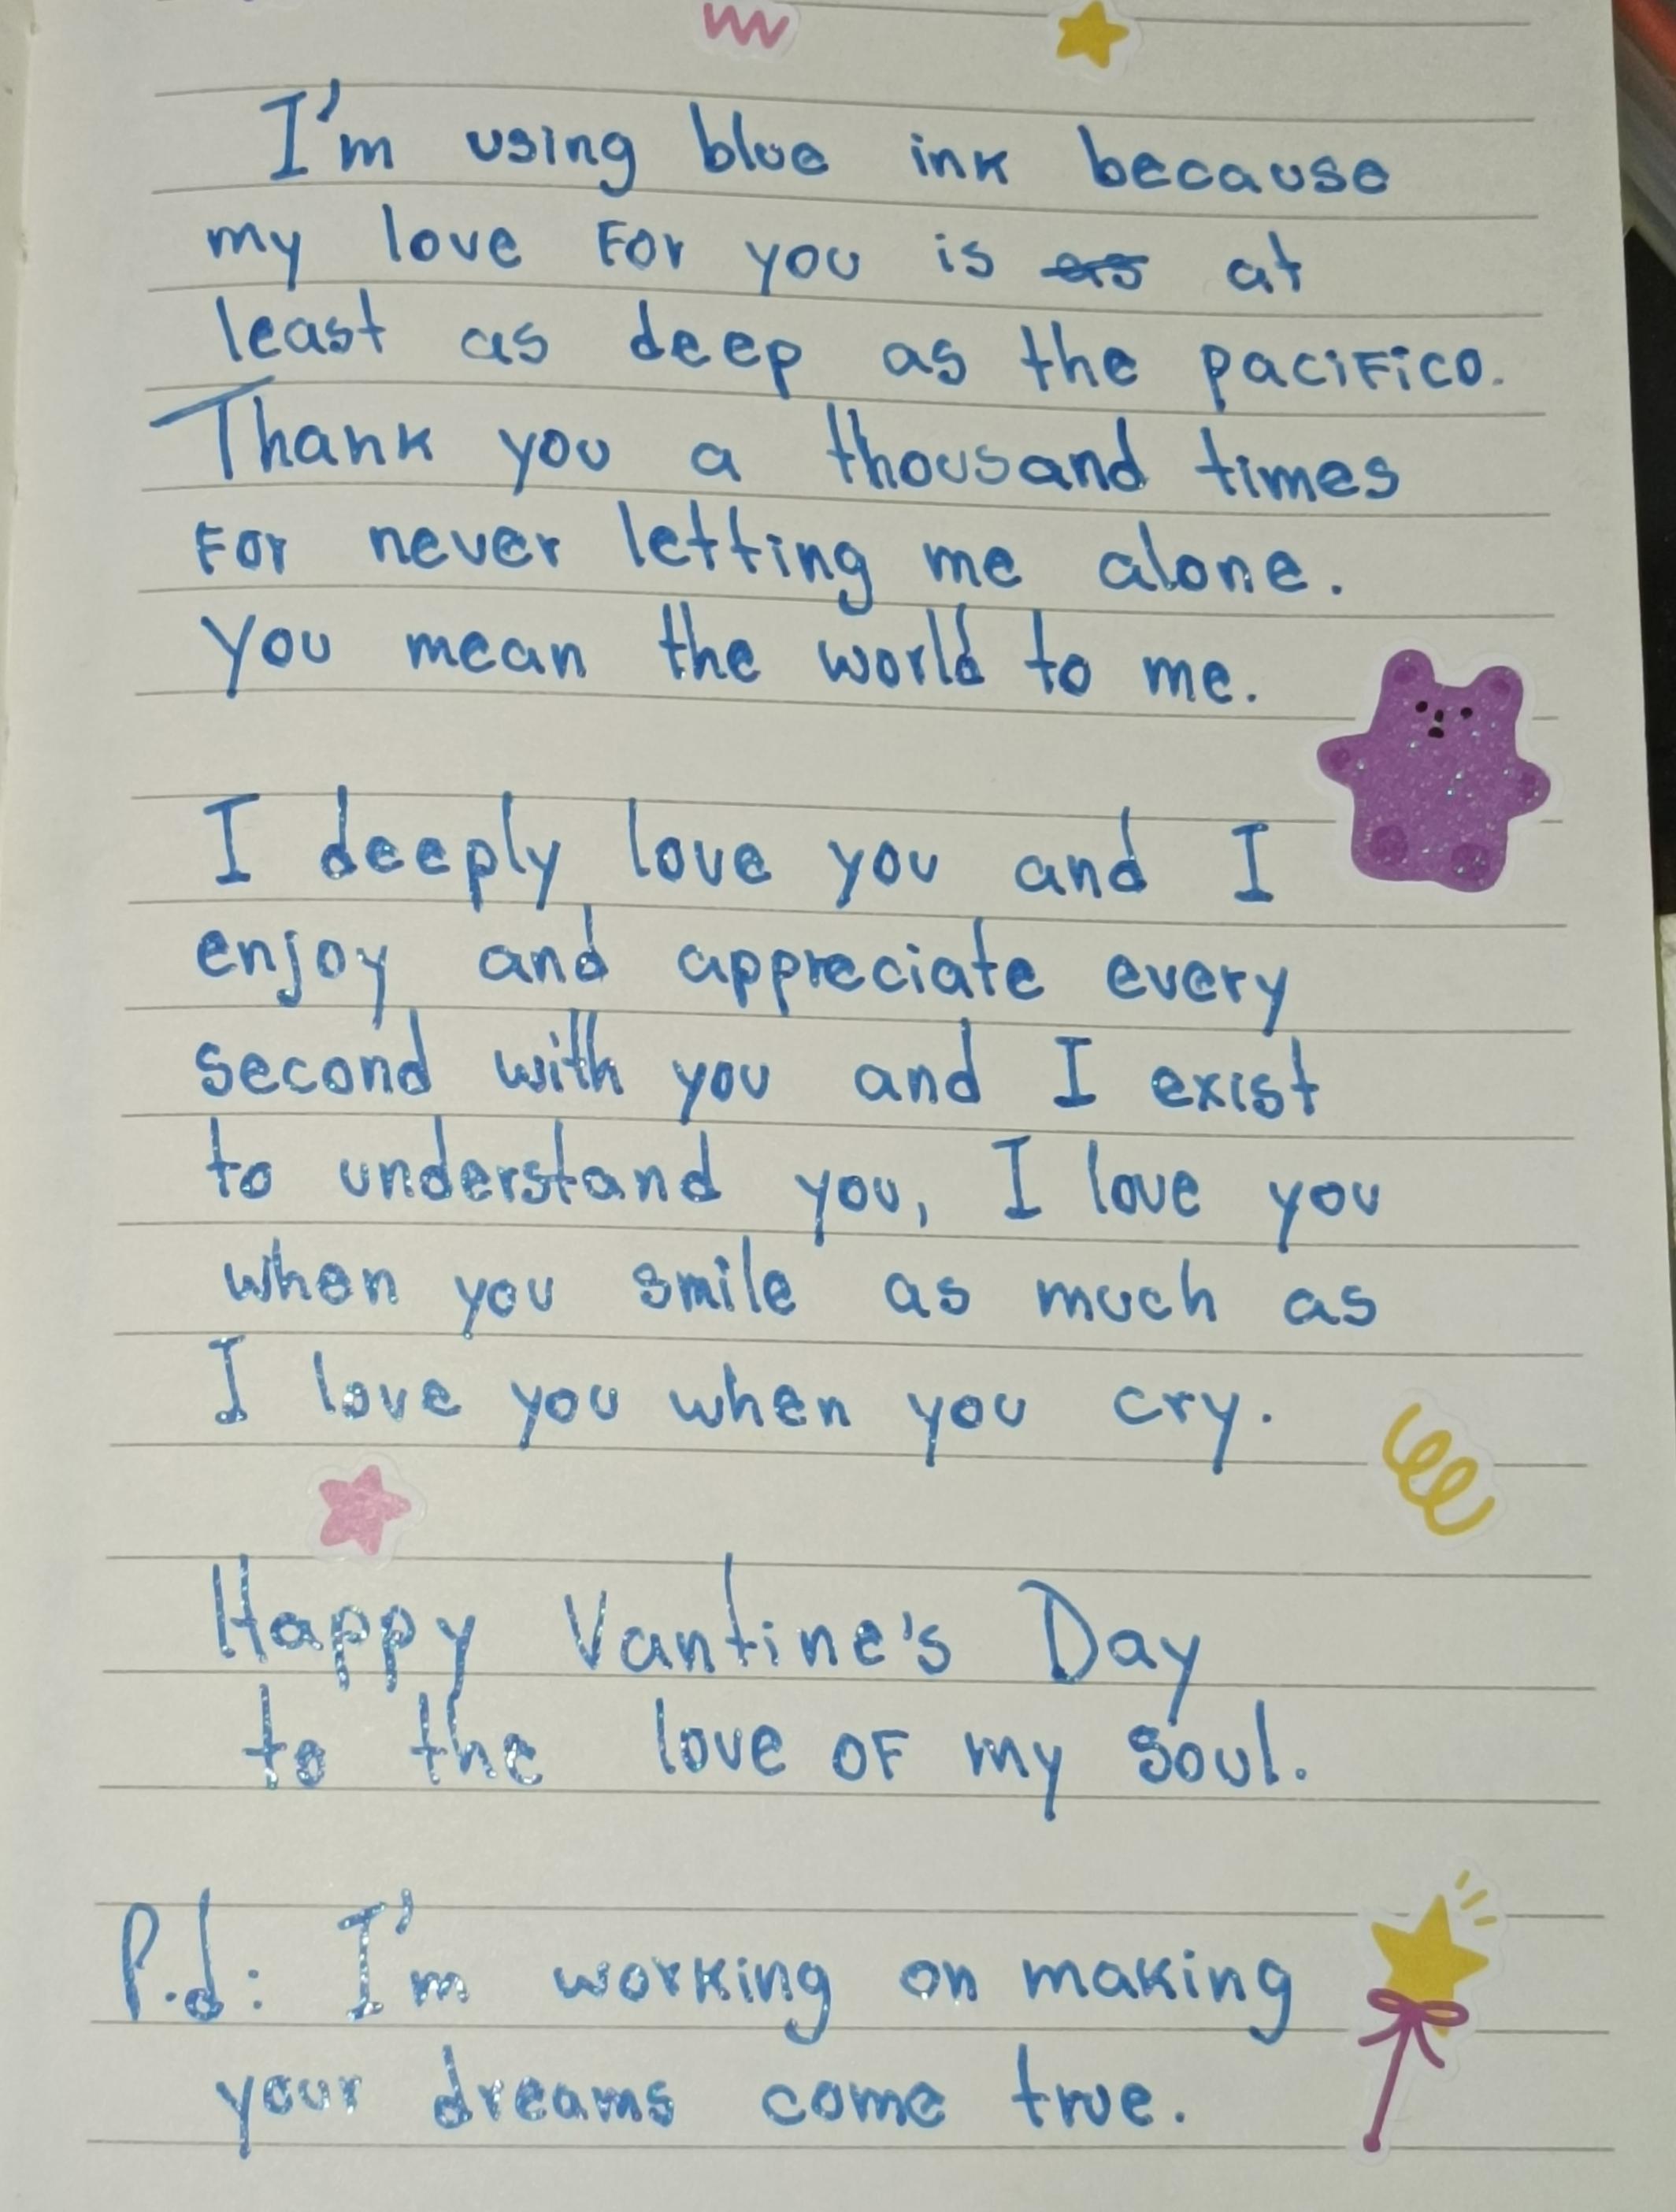 I'm using blue ink because
my love For you is as at
least as deep as the paciFico.
Thank you a thousand times
For never letting me alone.
You mean the world to me.
I deeply love you and I
enjoy and appreciate every
second with you and I exist
to understand you, I love you
when you smile as much as
I love you when you cry.
Happy Vantine's Day
to the love oF my soul.
P.d: I'm working on making
your dreams come true.